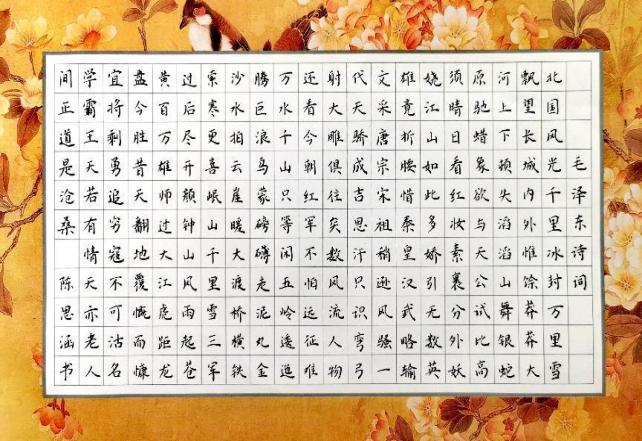 毛泽东诗词
北国风光千里冰封万里雪
飘望长城内外惟馀莽莽大
河上下顿失滔滔山舞银蛇
原驰蜡象欲与天公试比高
须晴日看红妆素裹分外妖
娆江山如此多娇引无数英
雄竞折腰惜秦皇汉武略输
文采唐宗宋祖稍逊风骚一
代天骄成吉思汗只识弯弓
射大雕俱往矣数风流人物
还看今朝红军不怕远征难
万水千山只等闲五岭逶迤
腾巨浪乌蒙磅礴走泥丸金
沙水拍云崖暖大渡桥横铁
索寒更喜岷山千里雪三军
过后尽开颜钟山风雨起苍
黄百万雄师过大江虎距龙
盘今胜昔天翻地覆慨而慷
宜将剩勇追穷寇不可沽名
学霸王天若有情天亦老人
间正道是沧桑 陈思涵书